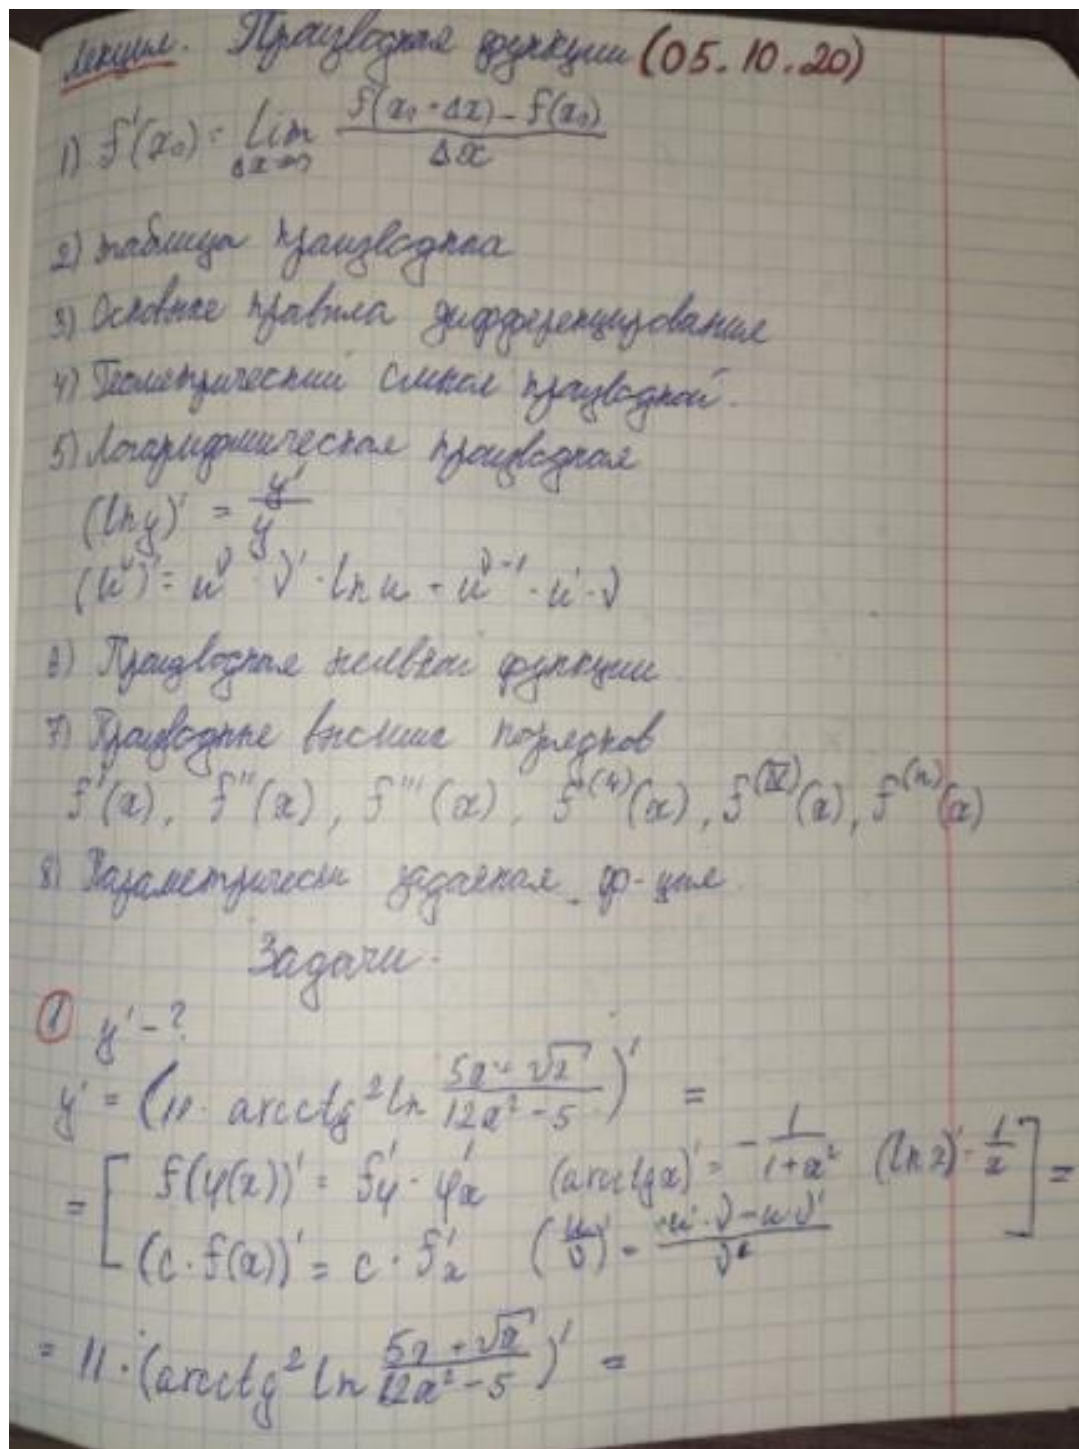 Лекция. Производная функции (05.10.20)
1) f'(x₀) = lim Δx→0 (f(x₀ + Δx) - f(x₀)) / Δx
2) таблица производна
3) Основные правила дифференцирования
4) Геометрический смысл производной.
5) Логарифмическая производная
(ln y)' = y' / y
(u^v)' = u^v · v' · ln u + u^(v-1) · u' · v
6) Производная неявной функции
7) Производные высших порядков
f'(x), f''(x), f'''(x), f^(4)(x), f^(IV)(x), f^(n)(x)
8) Параметрически заданная ф-ция
Задачи.
① y' - ?
y' = (11 · arcctg² ln (5x + √x) / (12x² - 5))' =
= [ f(φ(x))' = f'φ · φ'x (arcctg x)' = - 1 / (1 + x²) (ln x)' = 1 / x
(c · f(x))' = c · f'x (u / v)' = (u' · v - u · v') / v² ] =
= 11 · (arcctg² ln (5x + √x) / (12x² - 5))' =